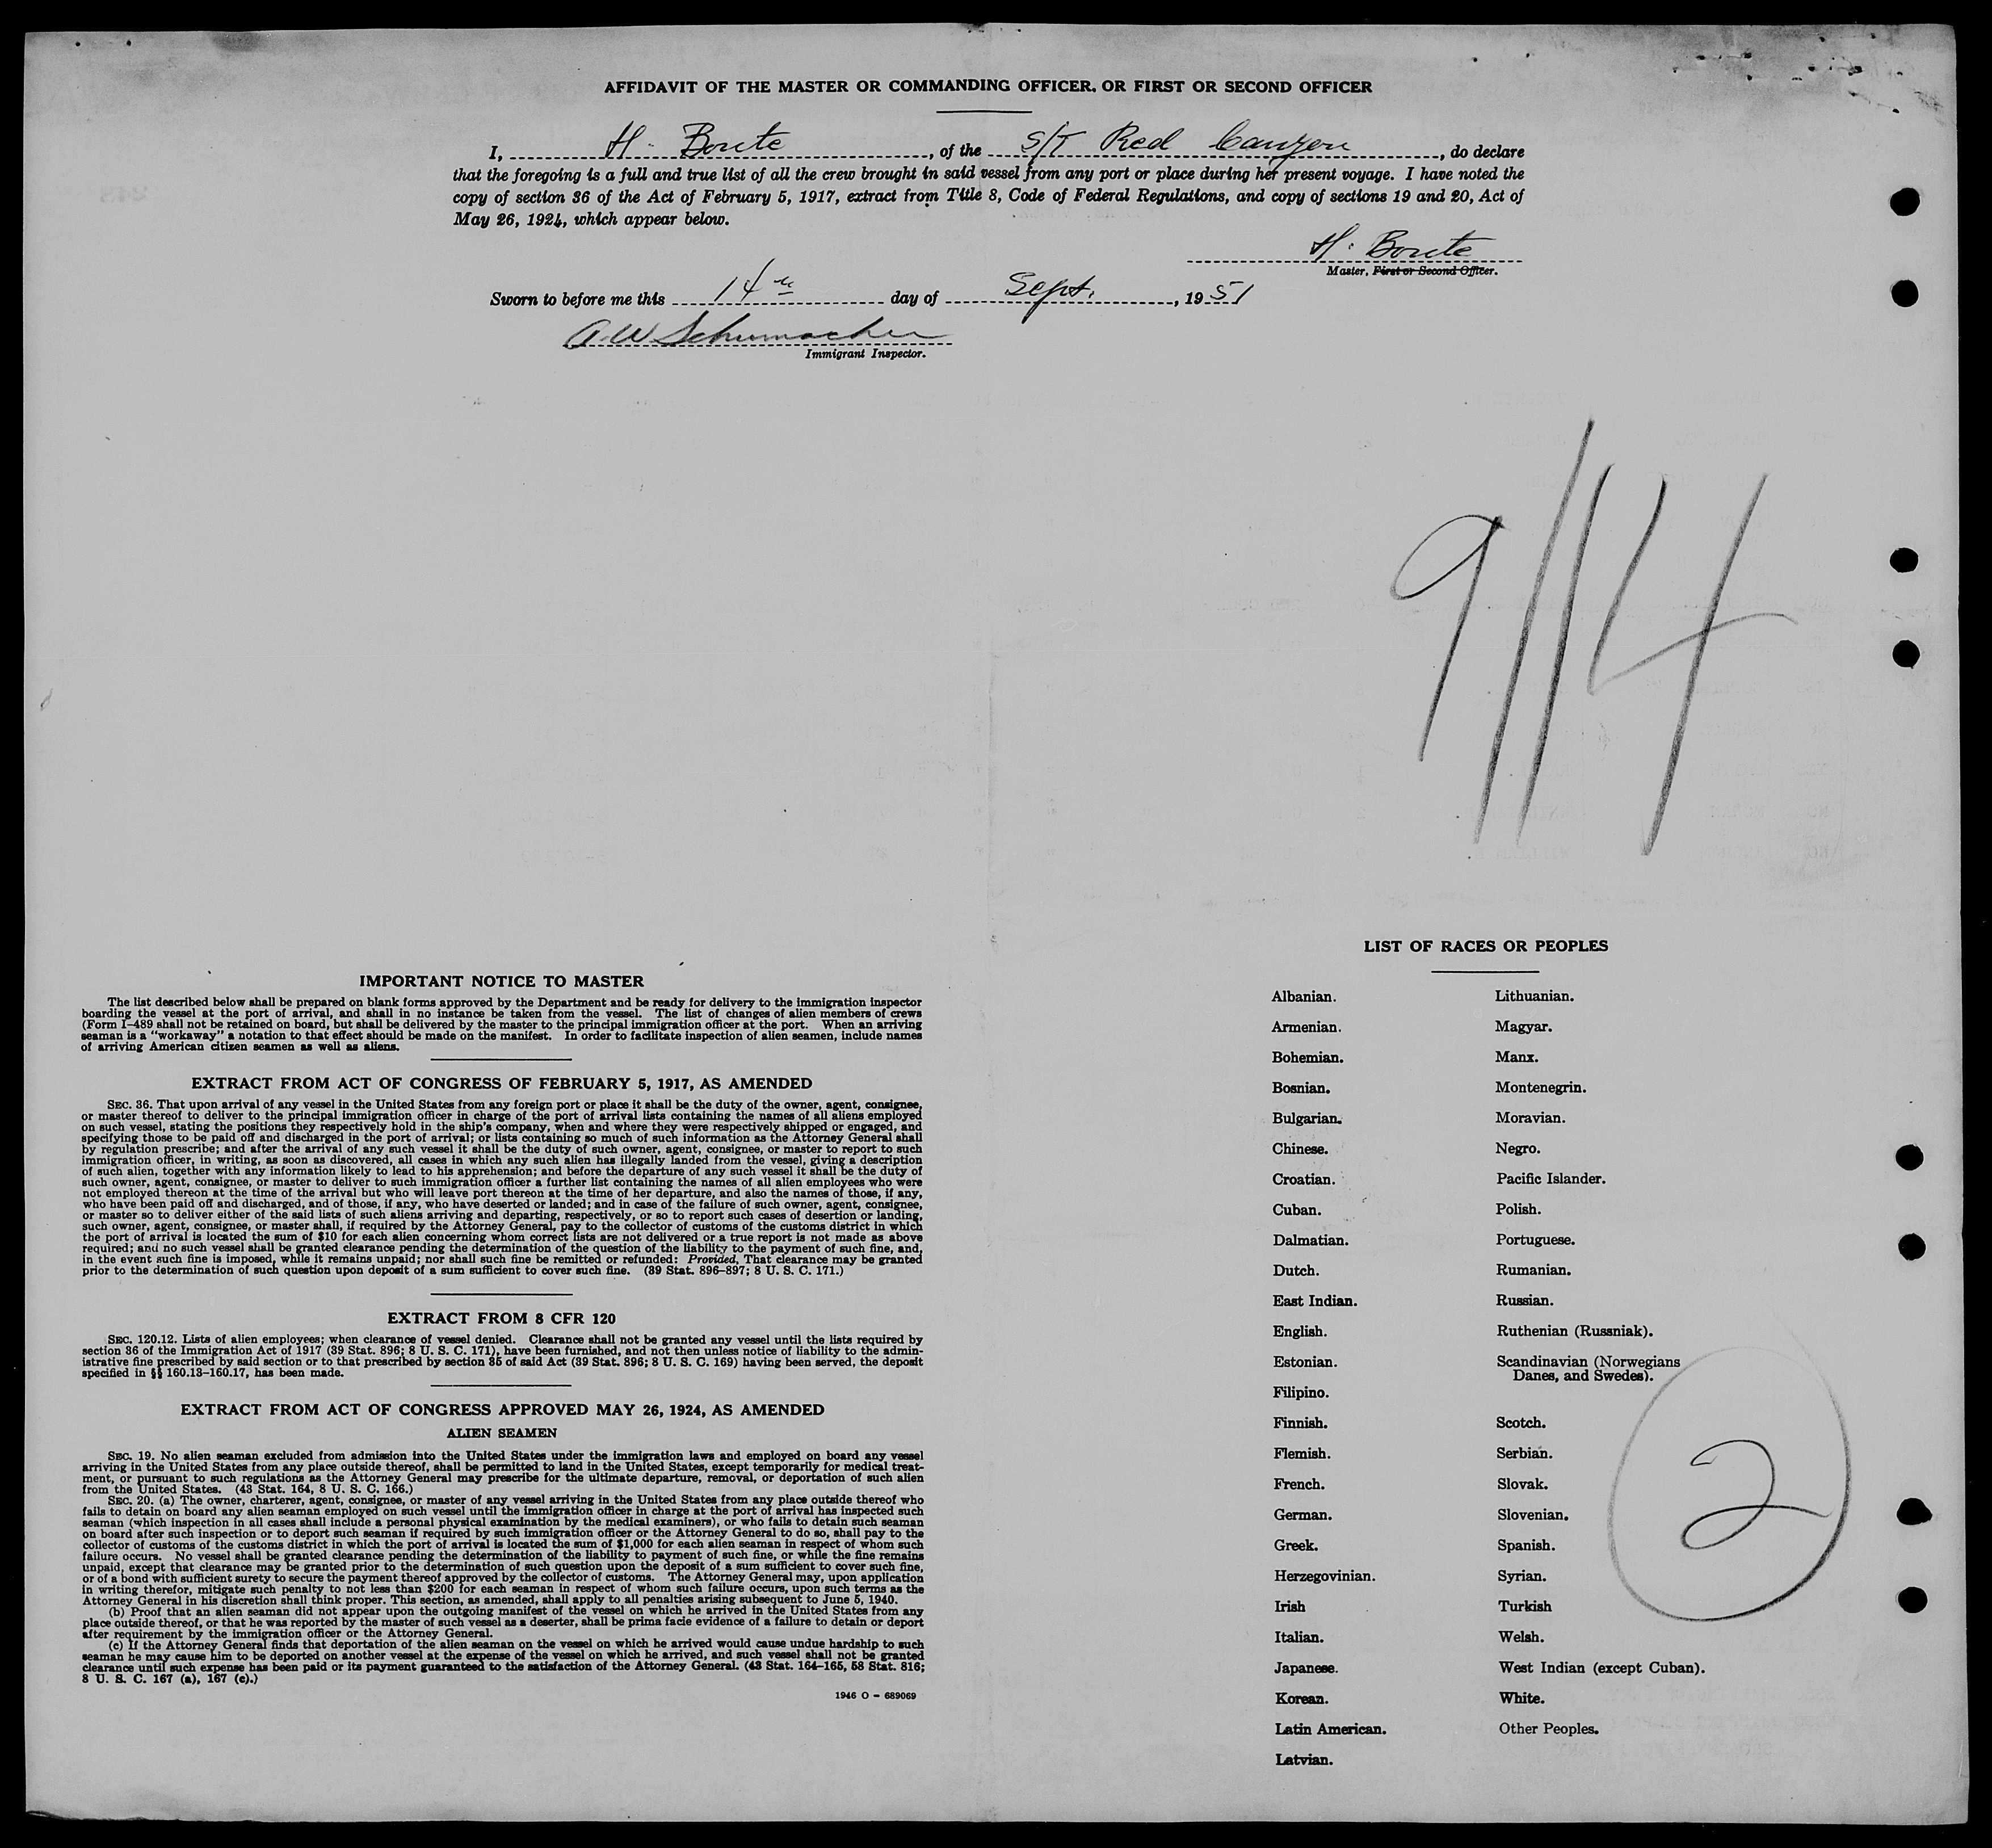 AFFIDAVIT OF THE MASTER OR COMMANDING OFFICER, OR FIRST OR SECOND OFFICER
I, H. Borite, of the S/T Red Canyon, do declare
that the foregoing is a full and true list of all the crew brought in said vessel from any port or place during her present voyage. I have noted the
copy of section 36 of the Act of February 5, 1917, extract from Title 8, Code of Federal Regulations, and copy of sections 19 and 20, Act of
May 26, 1924, which appear below.
H. Borite
Master, First or Second Officer.
Sworn to before me this 14th day of Sept., 1951
A.W Schumacher
Immigrant Inspector.
9/14
IMPORTANT NOTICE TO MASTER
The list described below shall be prepared on blank forms approved by the Department and be ready for delivery to the immigration inspector
boarding the vessel at the port of arrival, and shall in no instance be taken from the vessel. The list of changes of alien members of crews
(Form I-489 shall not be retained on board, but shall be delivered by the master to the principal immigration officer at the port. When an arriving
seaman is a "workaway" a notation to that effect should be made on the manifest. In order to facilitate inspection of alien seamen, include names
of arriving American citizen seamen as well as aliens.
EXTRACT FROM ACT OF CONGRESS OF FEBRUARY 5, 1917, AS AMENDED
SEC. 36. That upon arrival of any vessel in the United States from any foreign port or place it shall be the duty of the owner, agent, consignee,
or master thereof to deliver to the principal immigration officer in charge of the port of arrival lists containing the names of all aliens employed
on such vessel, stating the positions they respectively hold in the ship's company, when and where they were respectively shipped or engaged, and
specifying those to be paid off and discharged in the port of arrival; or lists containing so much of such information as the Attorney General shall
by regulation prescribe; and after the arrival of any such vessel it shall be the duty of such owner, agent, consignee, or master to report to such
immigration officer, in writing, as soon as discovered, all cases in which any such alien has illegally landed from the vessel, giving a description
of such alien, together with any information likely to lead to his apprehension; and before the departure of any such vessel it shall be the duty of
such owner, agent, consignee, or master to deliver to such immigration officer a further list containing the names of all alien employees who were
not employed thereon at the time of the arrival but who will leave port thereon at the time of her departure, and also the names of those, if any,
who have been paid off and discharged, and of those, if any, who have deserted or landed; and in case of the failure of such owner, agent, consignee,
or master so to deliver either of the said lists of such aliens arriving and departing, respectively, or so to report such cases of desertion or landing,
such owner, agent, consignee, or master shall, if required by the Attorney General, pay to the collector of customs of the customs district in which
the port of arrival is located the sum of $10 for each alien concerning whom correct lists are not delivered or a true report is not made as above
required; and no such vessel shall be granted clearance pending the determination of the question of the liability to the payment of such fine, and,
in the event such fine is imposed, while it remains unpaid; nor shall such fine be remitted or refunded: Provided, That clearance may be granted
prior to the determination of such question upon deposit of a sum sufficient to cover such fine. (39 Stat. 896-897; 8 U. S. C. 171.)
EXTRACT FROM 8 CFR 120
SEC. 120.12. Lists of alien employees; when clearance of vessel denied. Clearance shall not be granted any vessel until the lists required by
section 36 of the Immigration Act of 1917 (39 Stat. 896; 8 U. S. C. 171), have been furnished, and not then unless notice of liability to the admin-
istrative fine prescribed by said section or to that prescribed by section 35 of said Act (39 Stat. 896; 8 U. S. C. 169) having been served, the deposit
specified in §§ 160.13-160.17, has been made.
EXTRACT FROM ACT OF CONGRESS APPROVED MAY 26, 1924, AS AMENDED
ALIEN SEAMEN
SEC. 19. No alien seaman excluded from admission into the United States under the immigration laws and employed on board any vessel
arriving in the United States from any place outside thereof, shall be permitted to land in the United States, except temporarily for medical treat-
ment, or pursuant to such regulations as the Attorney General may prescribe for the ultimate departure, removal, or deportation of such alien
from the United States. (43 Stat. 164, 8 U. S. C. 166.)
SEC. 20. (a) The owner, charterer, agent, consignee, or master of any vessel arriving in the United States from any place outside thereof who
fails to detain on board any alien seaman employed on such vessel until the immigration officer in charge at the port of arrival has inspected such
seaman (which inspection in all cases shall include a personal physical examination by the medical examiners), or who fails to detain such seaman
on board after such inspection or to deport such seaman if required by such immigration officer or the Attorney General to do so, shall pay to the
collector of customs of the customs district in which the port of arrival is located the sum of $1,000 for each alien seaman in respect of whom such
failure occurs. No vessel shall be granted clearance pending the determination of the liability to payment of such fine, or while the fine remains
unpaid, except that clearance may be granted prior to the determination of such question upon the deposit of a sum sufficient to cover such fine,
or of a bond with sufficient surety to secure the payment thereof approved by the collector of customs. The Attorney General may, upon application
in writing therefor, mitigate such penalty to not less than $200 for each seaman in respect of whom such failure occurs, upon such terms as the
Attorney General in his discretion shall think proper. This section, as amended, shall apply to all penalties arising subsequent to June 5, 1940.
(b) Proof that an alien seaman did not appear upon the outgoing manifest of the vessel on which he arrived in the United States from any
place outside thereof, or that he was reported by the master of such vessel as a deserter, shall be prima facie evidence of a failure to detain or deport
after requirement by the immigration officer or the Attorney General.
(c) If the Attorney General finds that deportation of the alien seaman on the vessel on which he arrived would cause undue hardship to such
seaman he may cause him to be deported on another vessel at the expense of the vessel on which he arrived, and such vessel shall not be granted
clearance until such expense has been paid or its payment guaranteed to the satisfaction of the Attorney General. (43 Stat. 164-165, 58 Stat. 816;
8 U. S. C. 167 (a), 167 (c).)
1946 O - 689069
LIST OF RACES OR PEOPLES
Albanian. Lithuanian.
Armenian. Magyar.
Bohemian. Manx.
Bosnian. Montenegrin.
Bulgarian. Moravian.
Chinese. Negro.
Croatian. Pacific Islander.
Cuban. Polish.
Dalmatian. Portuguese.
Dutch. Rumanian.
East Indian. Russian.
English. Ruthenian (Russniak).
Estonian. Scandinavian (Norwegians
Danes, and Swedes).
Filipino.
Finnish. Scotch.
Flemish. Serbian.
French. Slovak.
German. Slovenian.
Greek. Spanish.
Herzegovinian. Syrian.
Irish Turkish
Italian. Welsh.
Japanese. West Indian (except Cuban).
Korean. White.
Latin American. Other Peoples.
Latvian.
2